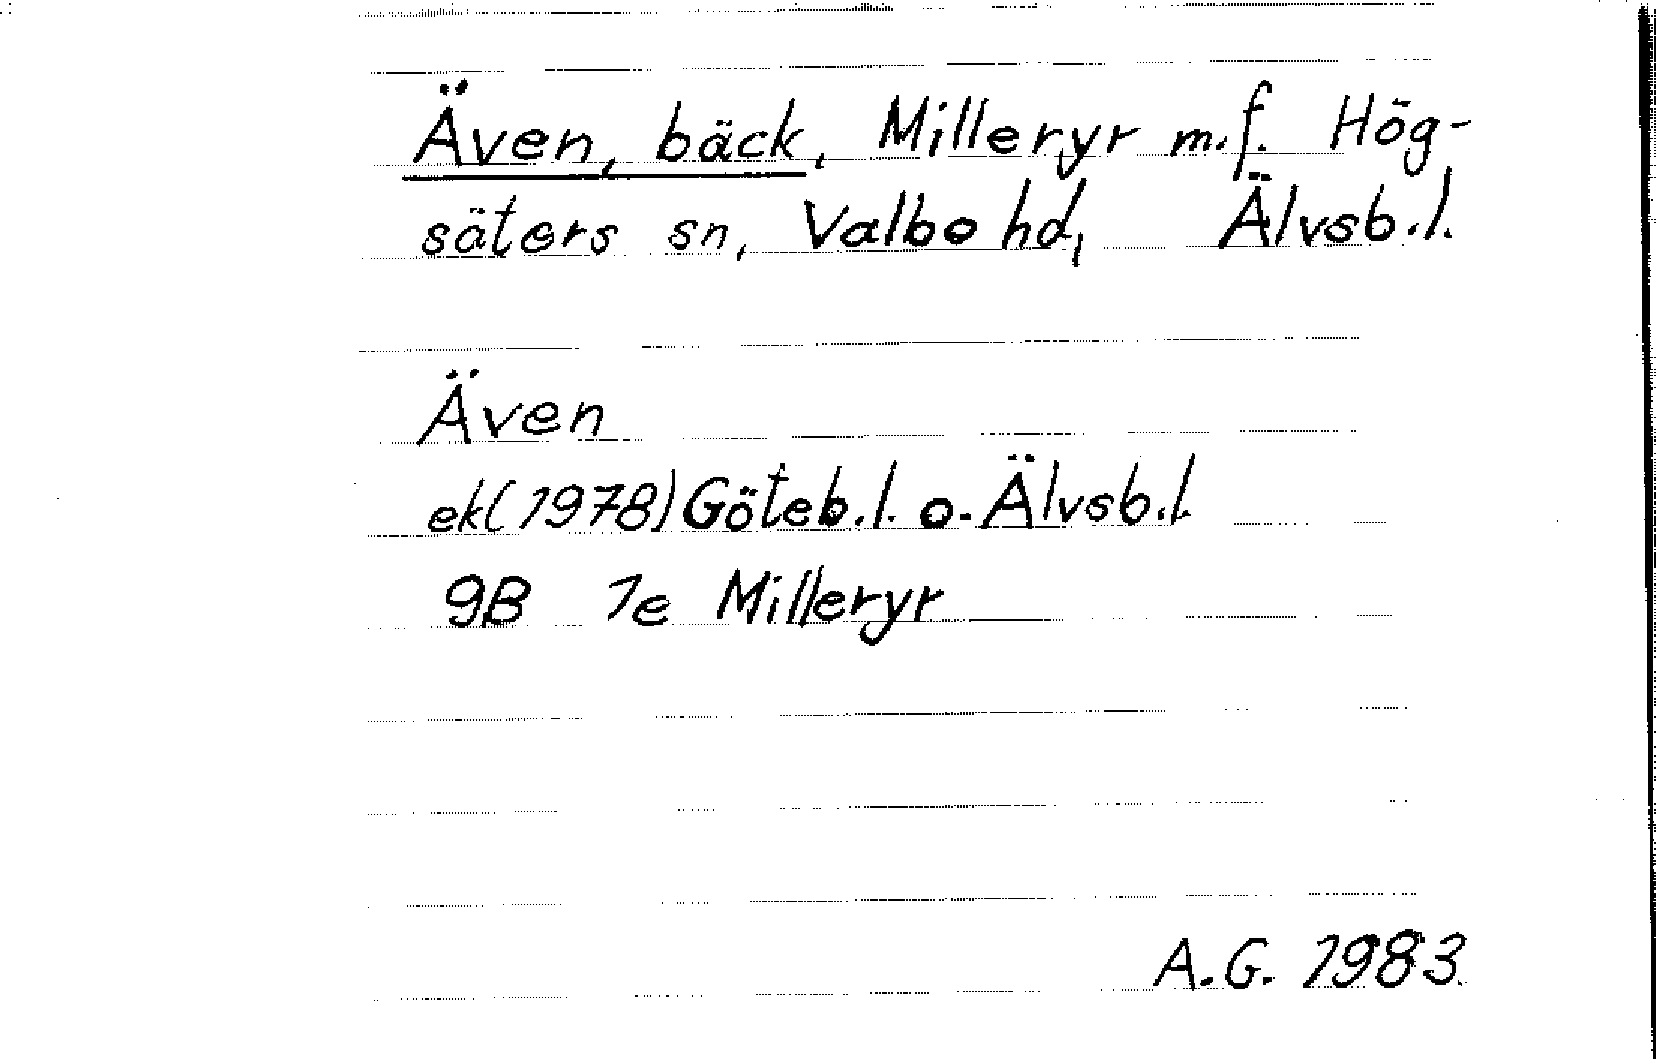 Även, bäck, Milleryr m.f. Hög-
säters sn, Valbo hd, Älvsb.l.
Även
ek(1978) Göteb.l. o. Älvsb.l.
9B 7e Milleryr
A.G. 1983